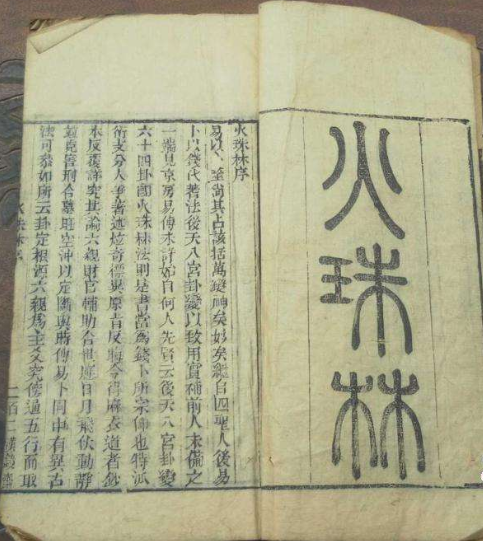 火珠林
火珠林序
易以卜筮尚其占該括萬變神矣妙矣繼自四聖人後易
卜以錢代蓍法後天八宮卦變以致用實補前人未備之
一端見京房易傳未詳始自何人先賢云後天八宮卦變
六十四卦卽火珠林法則是書當爲錢卜所宗仰也特派
衍支分人爭著述炫奇標異原旨反晦今得麻衣道者鈔
本反復詳究其論六親財官輔助合世應日月飛伏動靜
並克害刑合墓旺空沖以定斷與時傳易卜同中有異古
法可參如所云卦定根源六親爲主爻究傍通五行而取
火珠林序